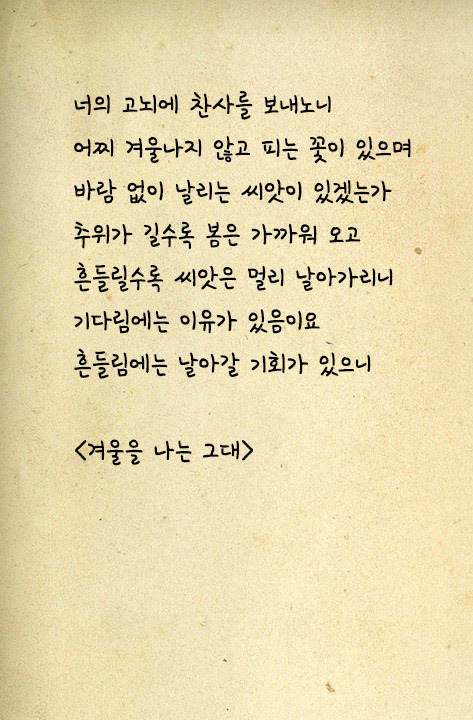 너의 고뇌에 찬사를 보내노니
어찌 겨울나지 않고 피는 꽃이 있으며
바람 없이 날리는 씨앗이 있겠는가
추위가 길수록 봄은 가까워 오고
흔들릴수록 씨앗은 멀리 날아가리니
기다림에는 이유가 있음이요
흔들림에는 날아갈 기회가 있으니
<겨울을 나는 그대>